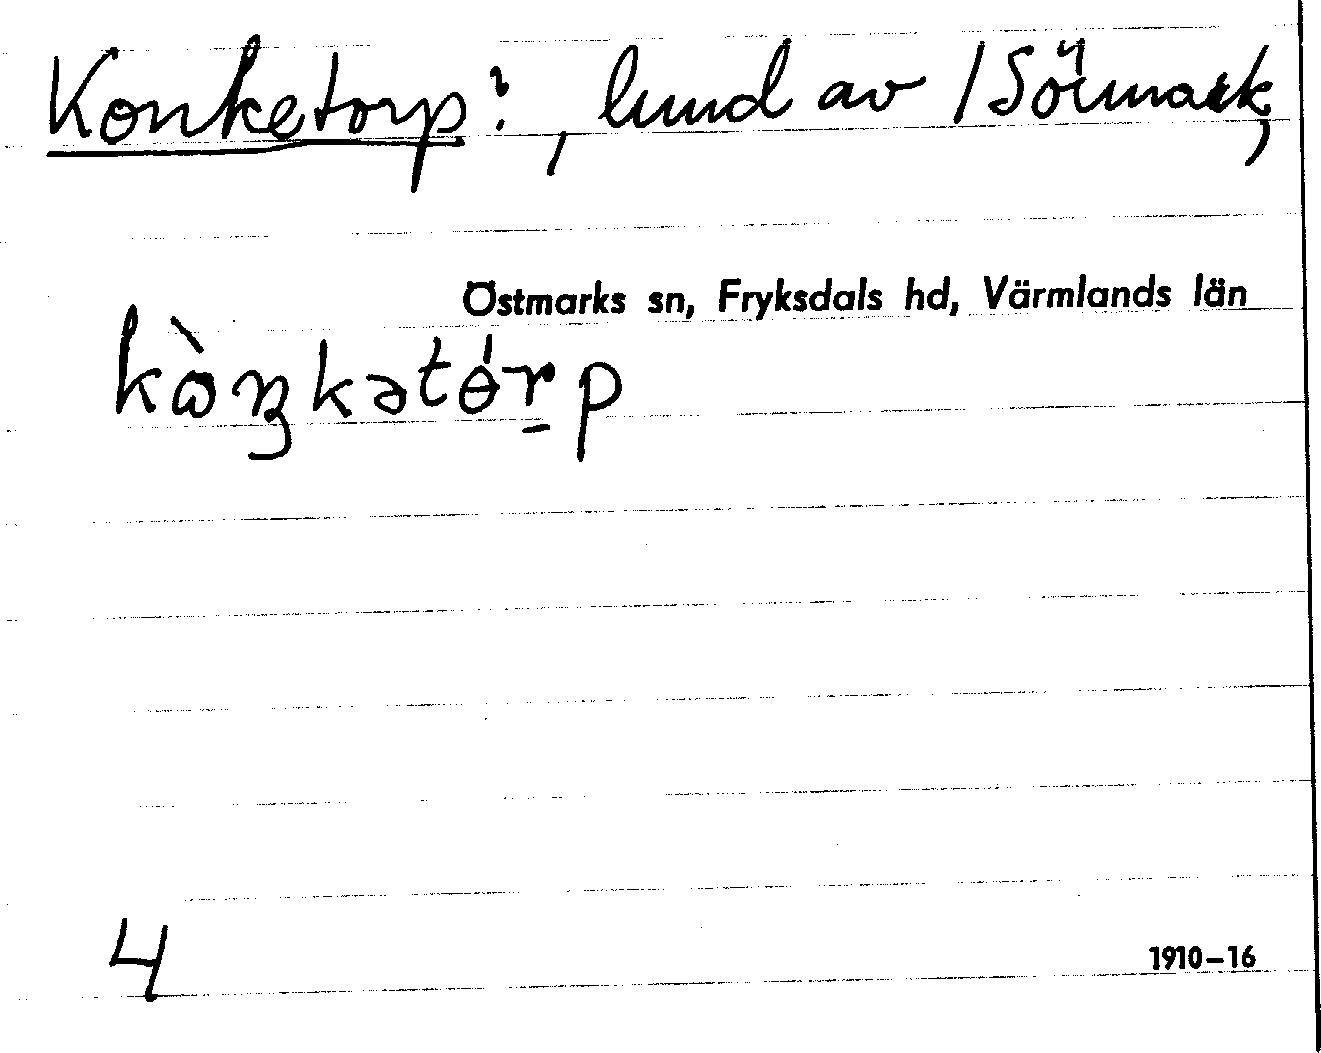 Konketorp?, lund av 1 Sörmark,
Östmarks sn, Fryksdals hd, Värmlands län
kὼŋkətɵ́r̲p
4
1910–16